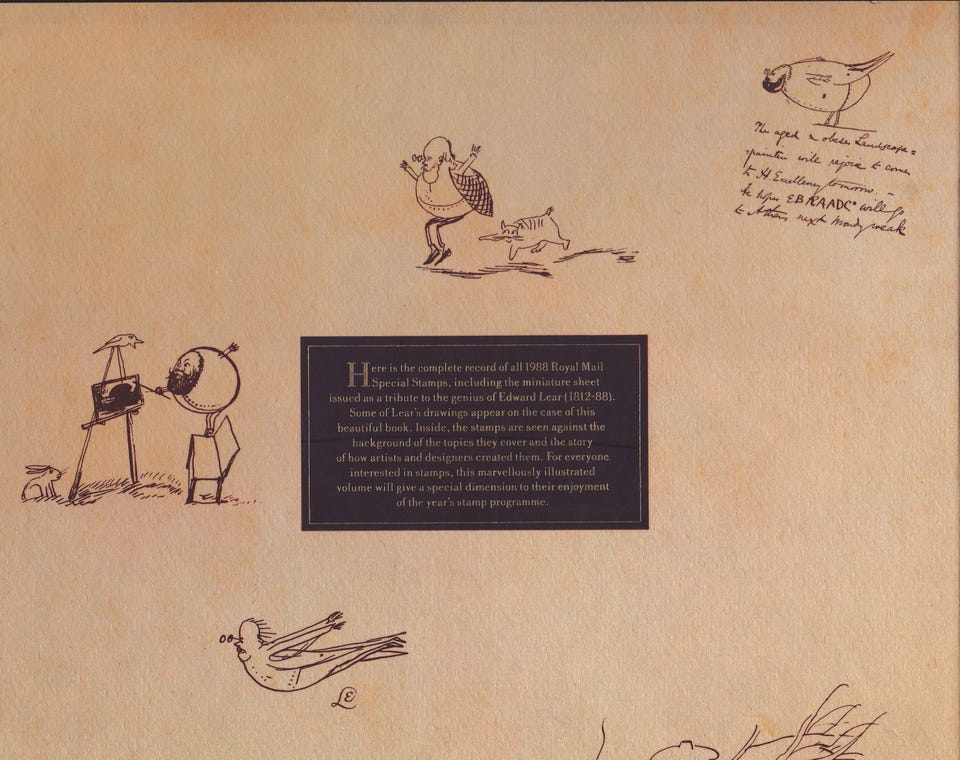 The aged & obese Landscape=
=painter will rejoice to come
to H. Excellency tomorrow. –
he hopes EBRAADC will go
to Athens next Mondy weak
Here is the complete record of all 1988 Royal Mail
Special Stamps, including the miniature sheet
issued as a tribute to the genius of Edward Lear (1812-88).
Some of Lear's drawings appear on the case of this
beautiful book. Inside, the stamps are seen against the
background of the topics they cover and the story
of how artists and designers created them. For everyone
interested in stamps, this marvellously illustrated
volume will give a special dimension to their enjoyment
of the year's stamp programme.